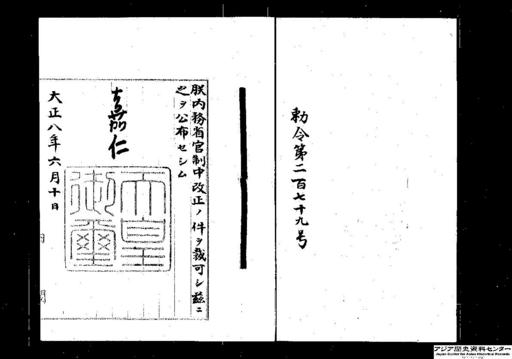 勅令第二百七十九号
朕内務省官制中改正ノ件ヲ裁可シ茲ニ
之ヲ公布セシム
嘉仁
天皇御璽
大正八年六月十日
アジア歴史資料センター
Japan Center for Asian Historical Records